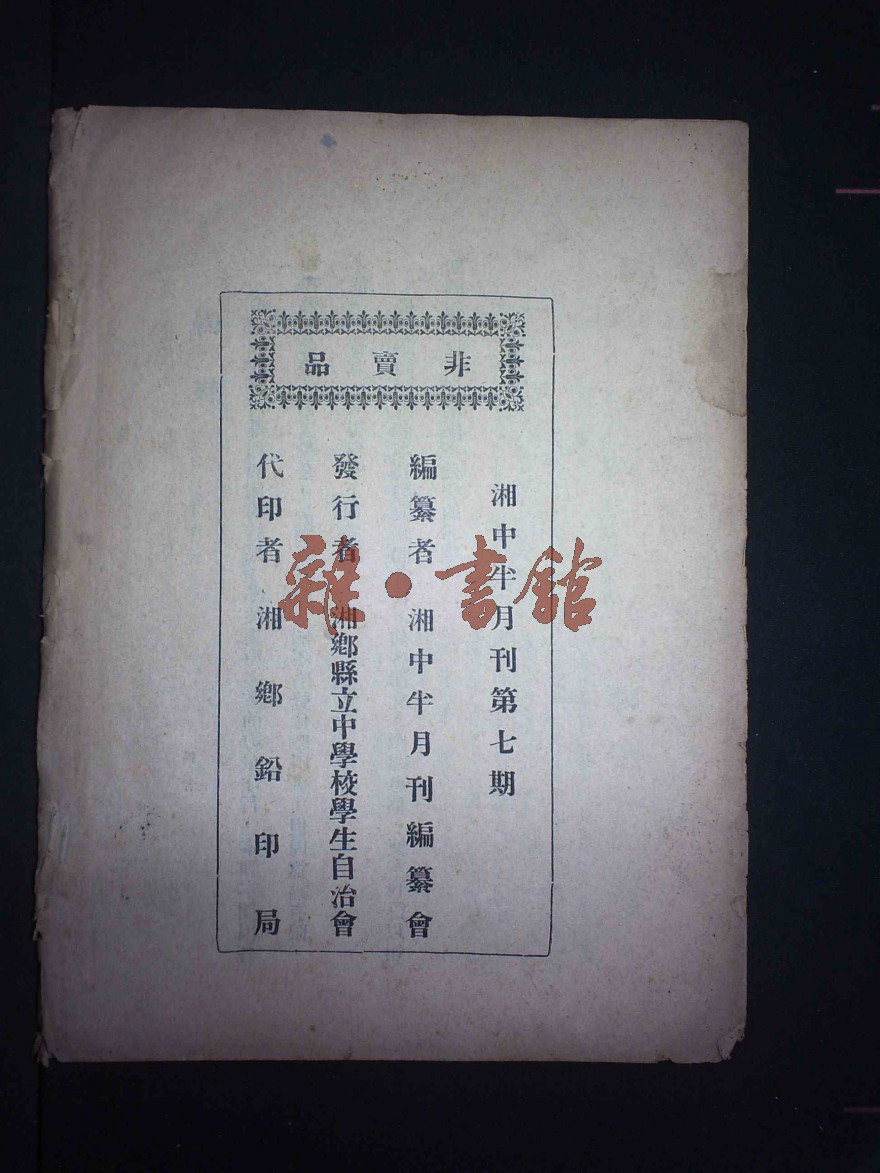 非賣品
湘中半月刊第七期
編纂者 湘中半月刊編纂會
發行者 湘鄉縣立中學校學生自治會
代印者 湘鄉鉛印局
雜·書館